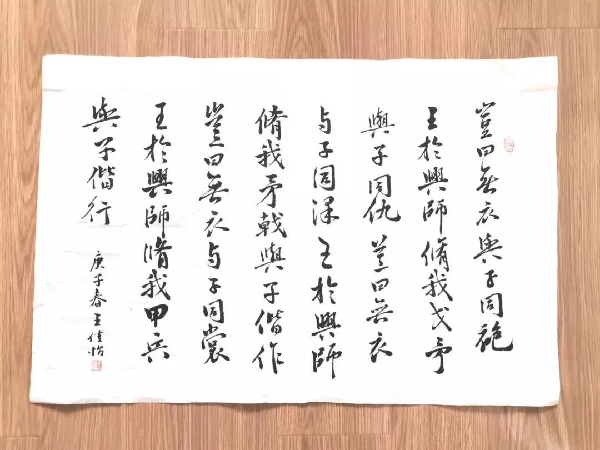 豈曰無衣與子同袍
王於興師脩我戈矛
與子同仇豈曰無衣
与子同澤王於興師
脩我矛戟與子偕作
豈曰無衣与子同裳
王於興師脩我甲兵
與子偕行
庚子春王佳怡